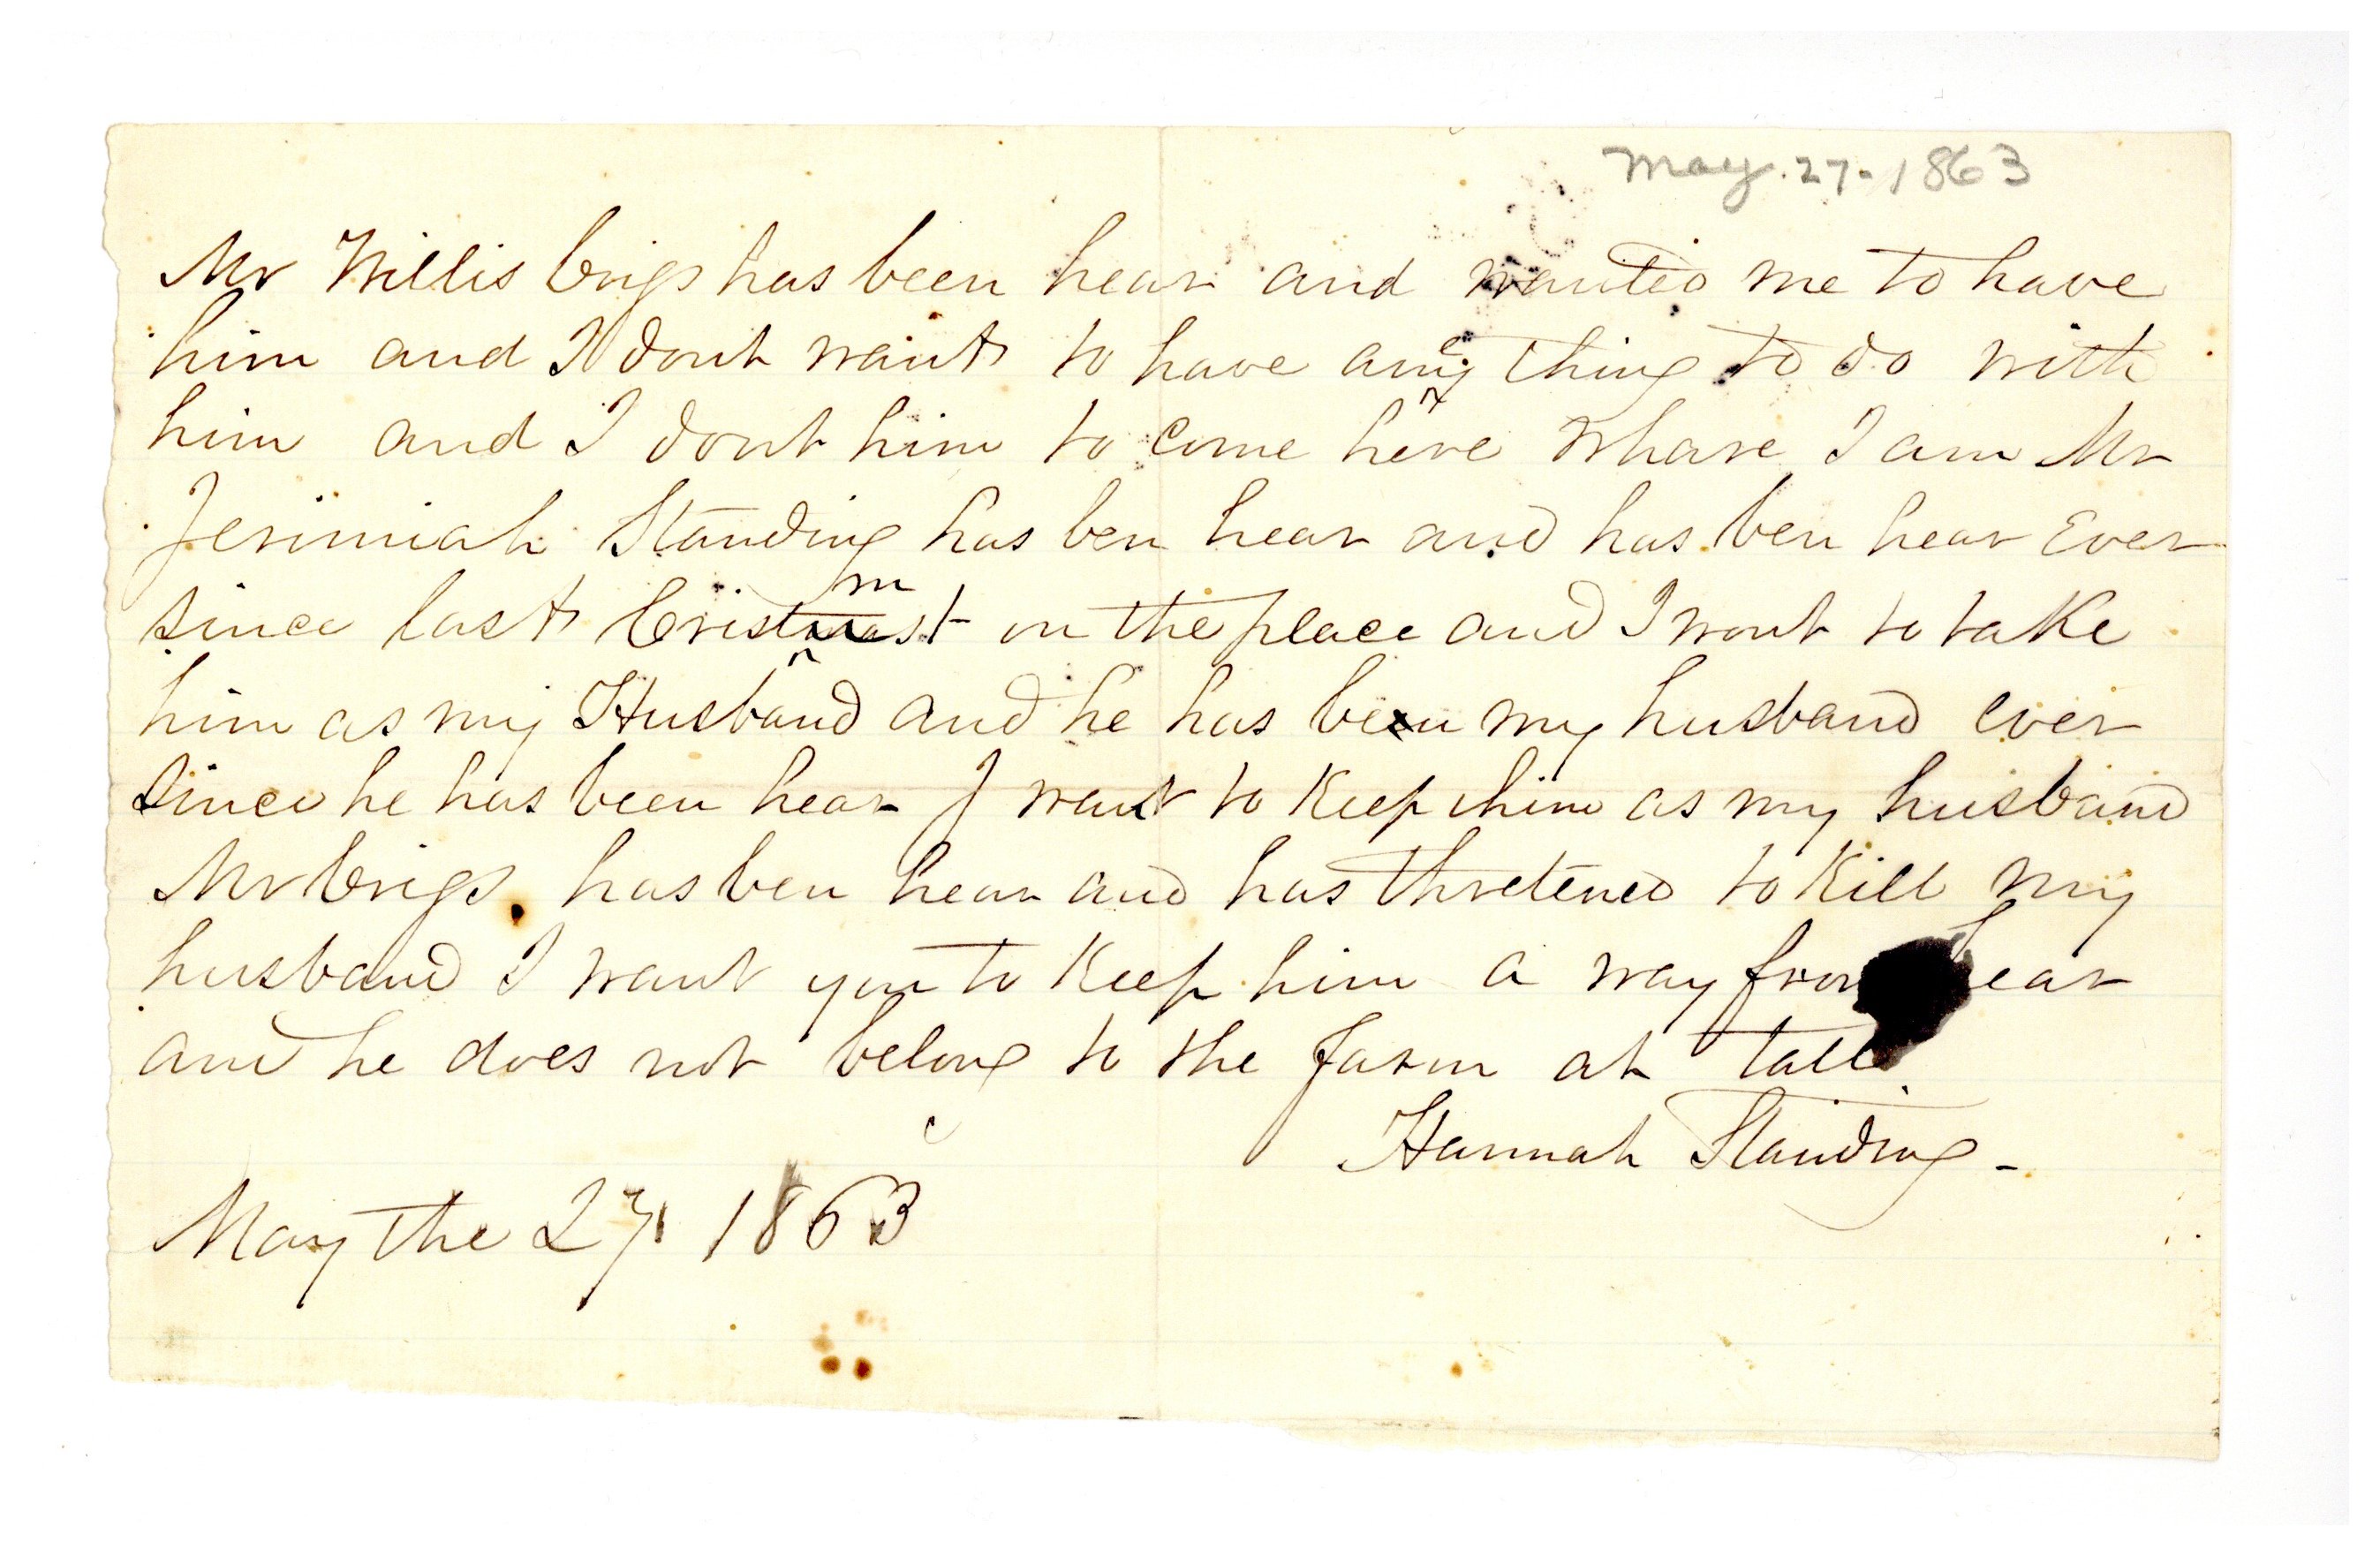 May. 27. 1863
Mr Willis brigs has been hear and wanted me to have
him and I dont want to have aney thing to do with
him and I dont him to come here whare I am Mr
Jerimiah Standing has ben hear and has ben hear Ever
since last Cristmast on the place and I wont to take
him as my Husband and he has been my husband ever
since he has been hear I want to Keep him as my husband
Mr brigs has ben hear and has thretened to Kill my
husband I want you to Keep him a way from hear
and he does not belong to the farm at tall
Hannah Standing -
May the 27 1863